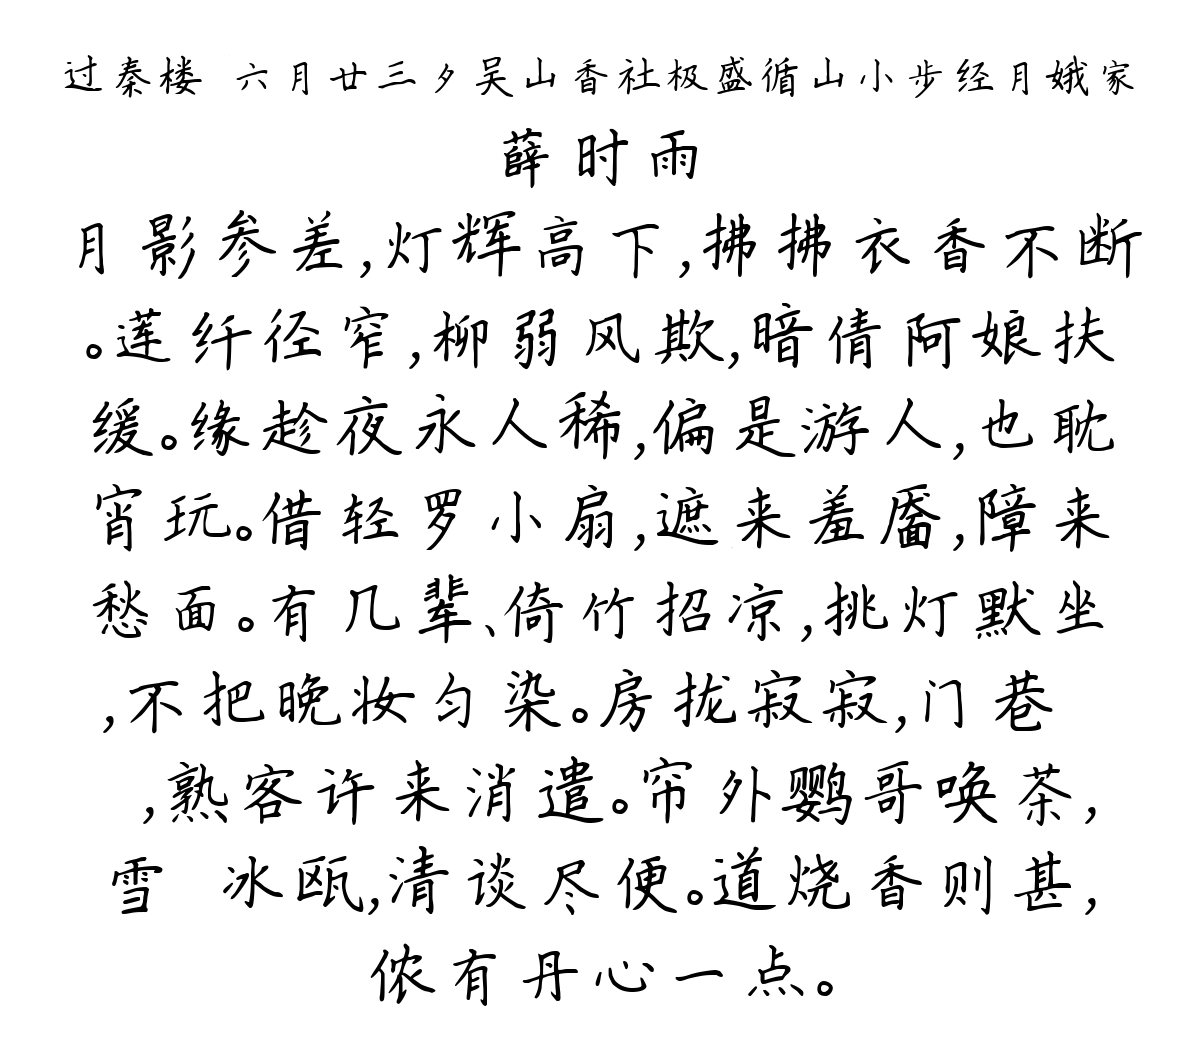 过秦楼 六月廿三夕吴山香社极盛循山小步经月娥家
薛时雨
月影参差,灯辉高下,拂拂衣香不断
。莲纤径窄,柳弱风欺,暗倩阿娘扶
缓。缘趁夜永人稀,偏是游人,也耽
宵玩。借轻罗小扇,遮来羞靥,障来
愁面。有几辈、倚竹招凉,挑灯默坐
,不把晚妆匀染。房拢寂寂,门巷
,熟客许来消遣。帘外鹦哥唤茶,
雪 冰瓯,清谈尽便。道烧香则甚,
侬有丹心一点。